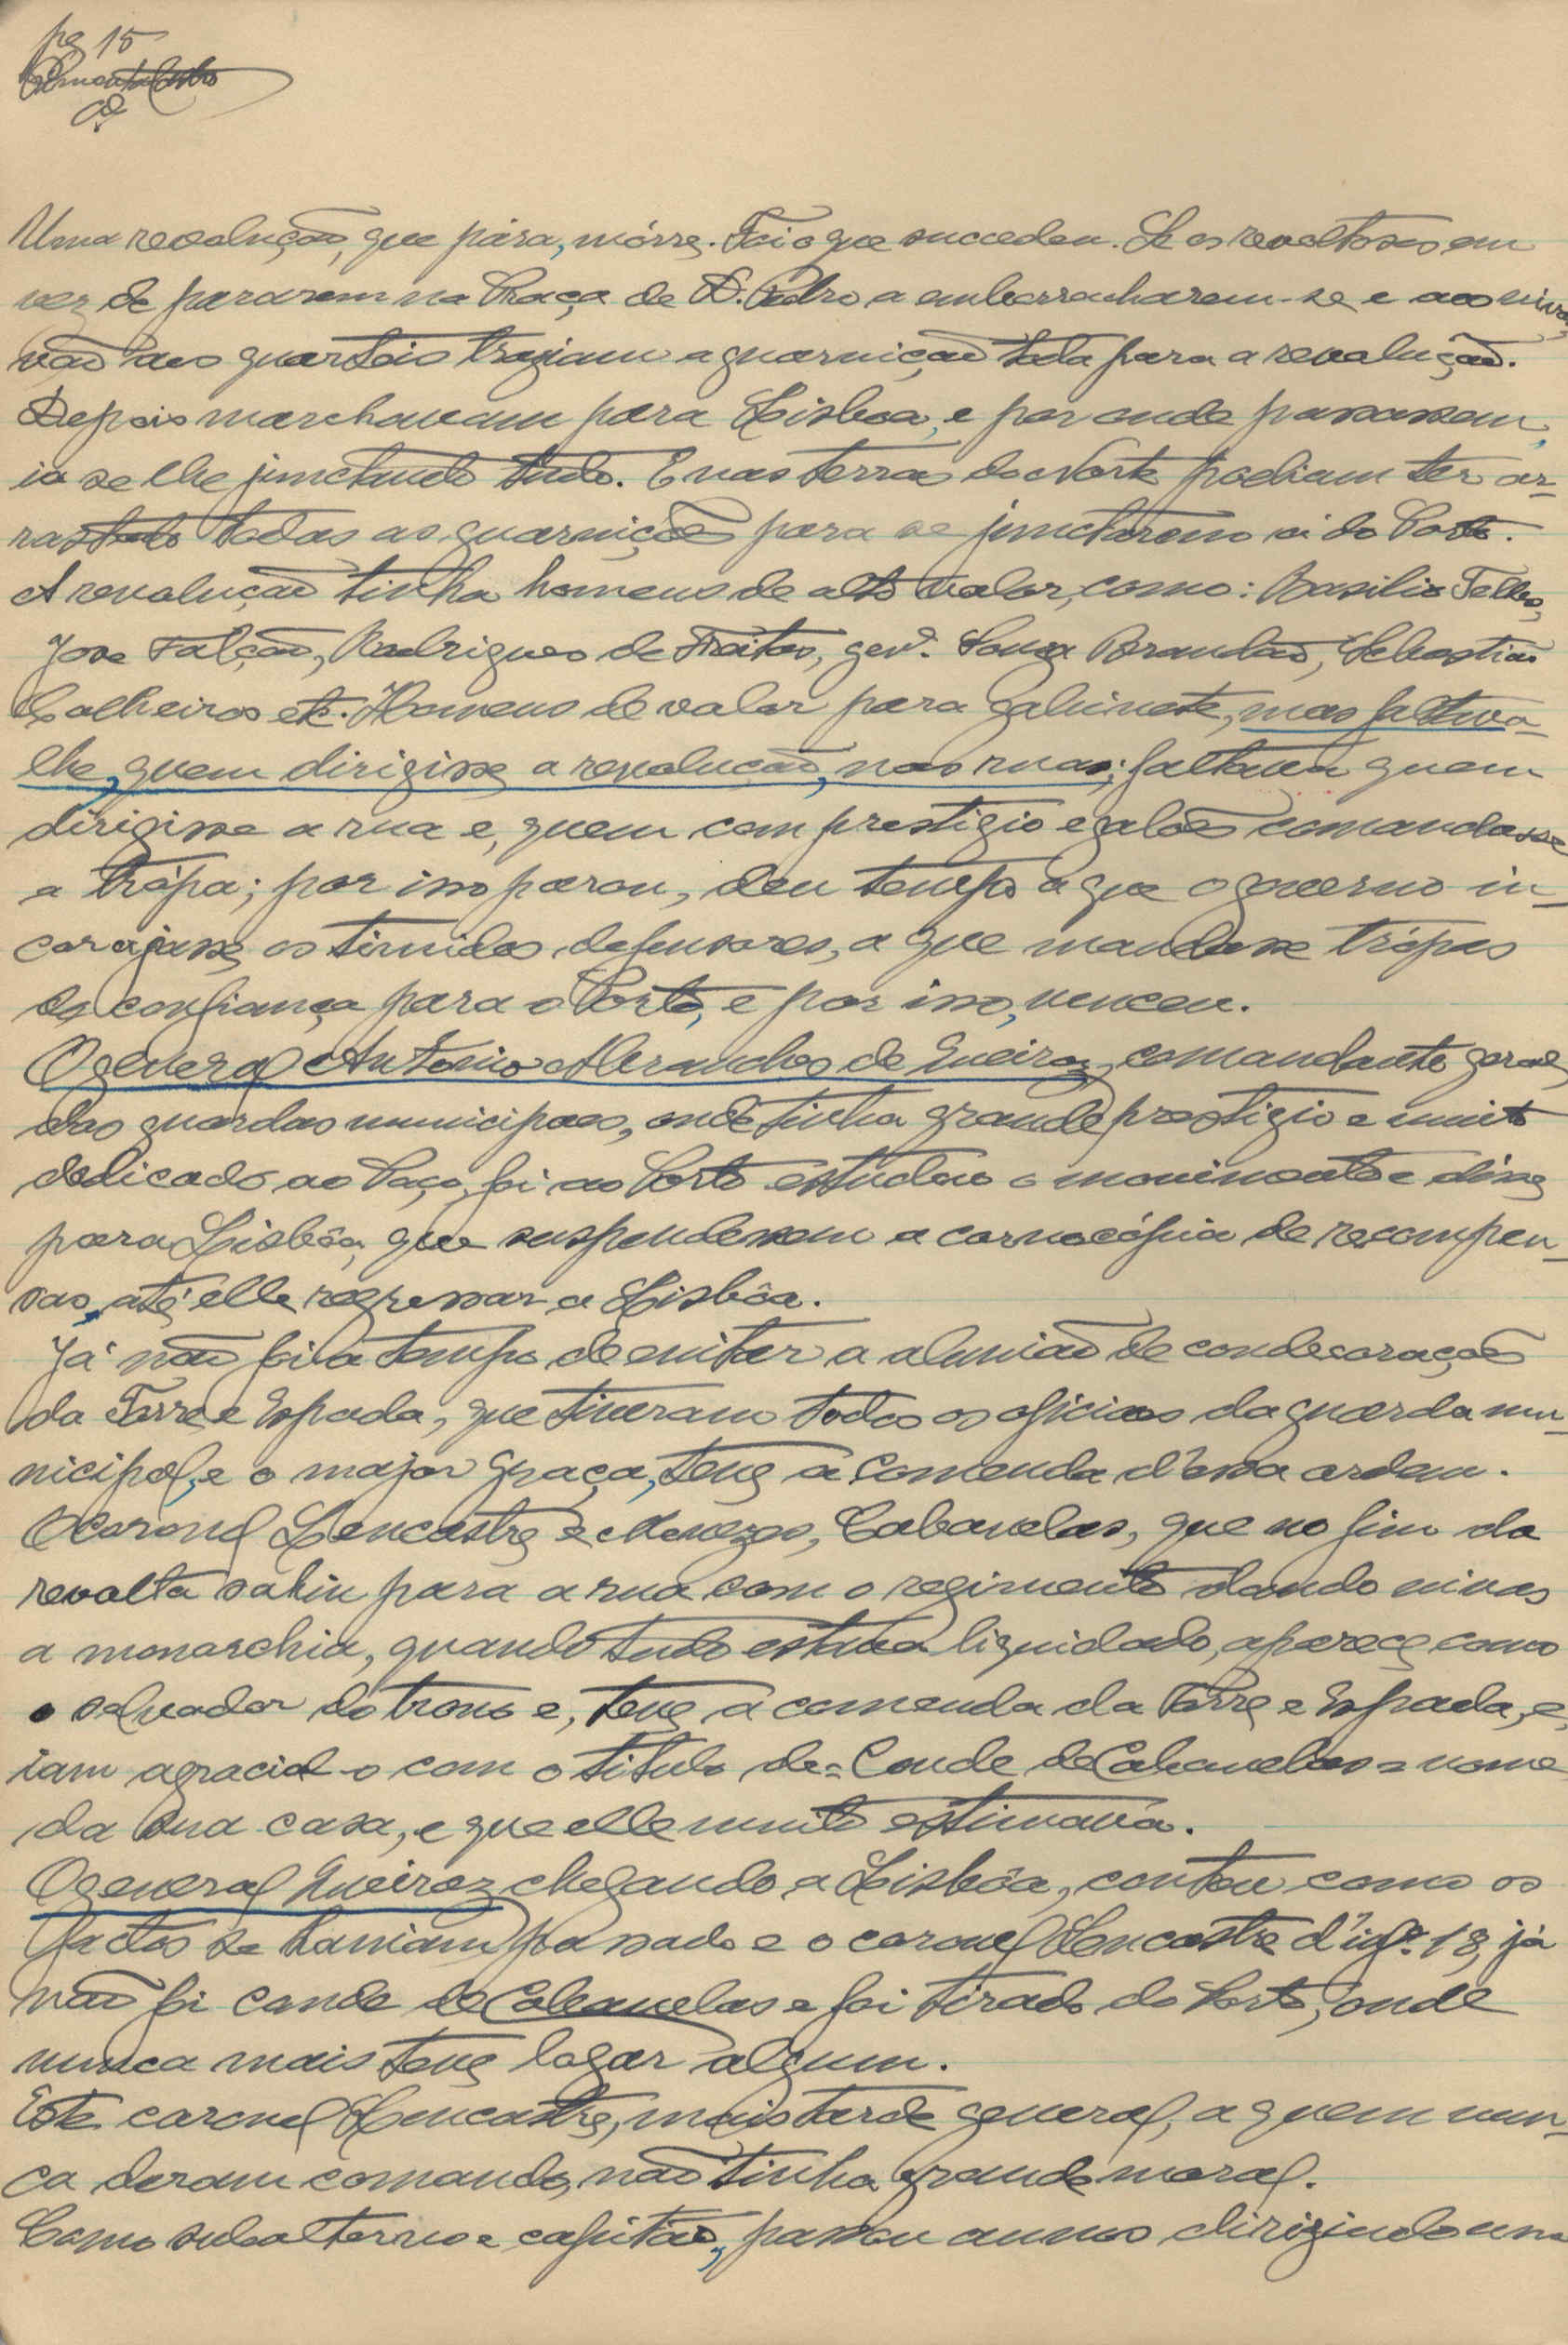 pg 15
Uma revolução, que pára, mórre. Foi o que succedeu. Se os revoltosos em
vez de pararem na Praça de D. Pedro a emborracharem-se e aos vivas,
vão aos quarteis traziam a guarnição toda para a revolução.
Depois marchavam para Lisboa, e por onde passassem,
ia se lhe junctando tudo. E nas terras do Norte podiam ter ar-
rastado todas as guarnições para se junctarem á do Porto.
A revolução tinha homens de alto valor, como: Basilio Telles,
José Falcão, Rodrigues de Freitas, gen.al Souza Brandão, Sebastião
Calheiros etc. Homens de valor para gabinete, mas faltava-
lhe, quem dirigisse a revolução, nas ruas; faltava quem
dirigisse a rua e, quem com prestigio e galões comandasse
a trópa; por isso parou, deu tempo a que o governo in-
corajasse os timidos defensores, a que mandasse trópas
de confiança para o Porto, e por isso, venceu.
O general Antonio Abranches de Queiroz, comandante geral
das guardas municipaes, onde tinha grande prestigio e muito
dedicado ao Paço, foi ao Porto estudar o movimento e disse
para Lisbôa, que suspendessem a cornocópia de recompen-
sas, até elle regressar a Lisbôa.
Já não foi a tempo de evitar a aluvião de condecorações
da Torre e Espada, que tiveram todos os oficiaes da guarda mu-
nicipal, e o major Graça, teve a Comenda d'essa ordem.
O coronel Lencastre e Menezes, Cabanelas, que no fim da
revolta sahiu para a rua com o regimento dando vivas
a monarchia, quando tudo estava liquidado, aparece como
o salvador do trono e, teve a comenda da Torre e Espada, e,
iam agracial-o com o titulo de = Conde de Cabanelas = nome
da sua casa, e que elle muito estimava.
O general Queiroz chegando a Lisbôa, contou como os
factos se haviam passado e o coronel Lencastre d'inf.ª 18, já
não foi conde de Cabanelas e foi tirado do Porto, onde
nunca mais teve logar algum.
Este coronel Lencastre, mais tarde general, a quem nun-
ca deram comando, não tinha grande moral.
Como subalterno e capitão, passou annos dirigindo uma